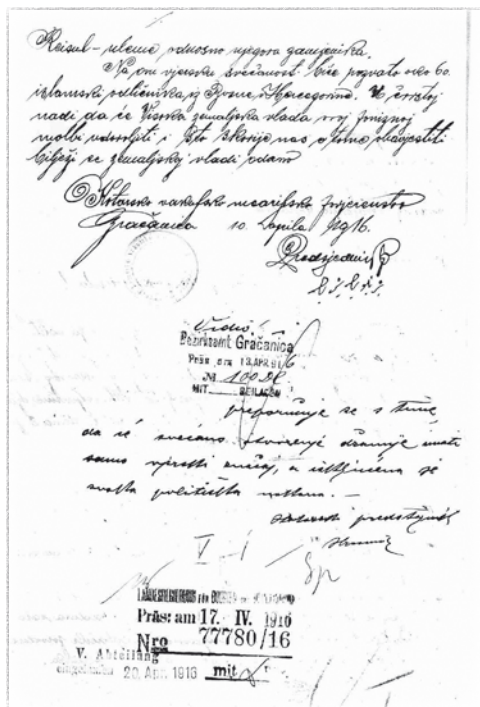 Reisul-uleme odnosno njegova zamjenika.
Na ovu vjersku svečanost biće pozvato oko 60.
islamskih odličnika iz Bosne i Hercegovine. U čvrstoj
nadi da će Visoka zemaljska vlada ovoj poniznoj
molbi udovoljiti i što skorije nas o tome obavjestiti
bilježi se zemaljskoj vladi odano
Kotarsko vakufsko mearifsko povjerenstvo
Gračanica 10. aprila 1916.
Predsjednik
Vidio
Bezirksamt Gračanica
Präs am 13. APR. 916
№ 100
MIT BEILAGEN
preporučuje se s time,
da će svečano otvorenje džamije imati
samo vjerski značaj, a isključena je
svaka politička
Kotarski predstojnik
V-1
LANDESREGIERUNG für BOSNIEN
Präs: am 17. IV. 1916
Nro 77780/16
V. Abteilung mit
20. Apr. 1916